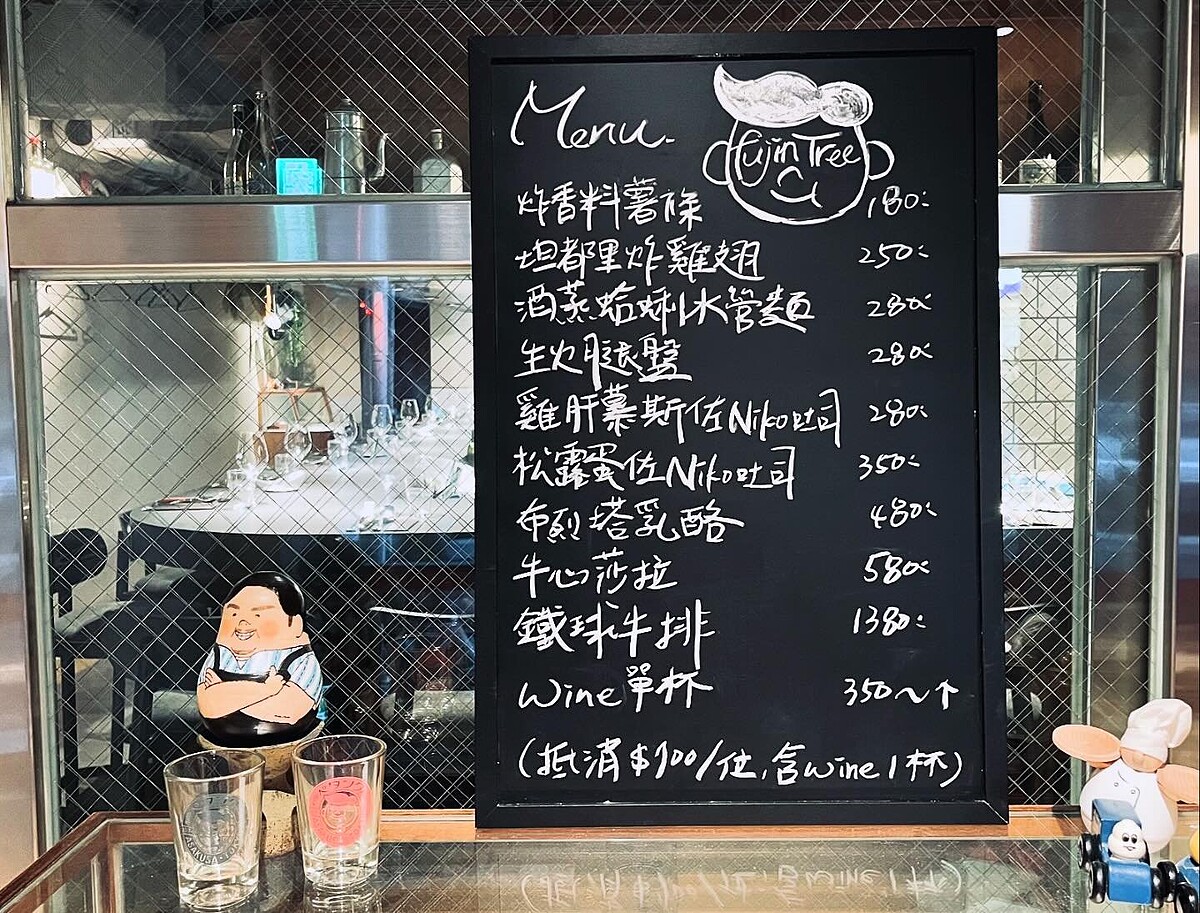 Menu.
Fujin Tree
炸香料薯條 180.-
坦都里炸雞翅 250.-
酒蒸蛤蜊水管麵 280.-
生火腿盤 280.-
雞肝慕斯佐Niko吐司 280.-
松露蛋佐Niko吐司 350.-
布烈塔乳酪 480.-
牛心莎拉 580.-
鐵球牛排 1380.-
Wine單杯 350~↑
(抵消$900/位,含wine1杯)
ASAKUSA